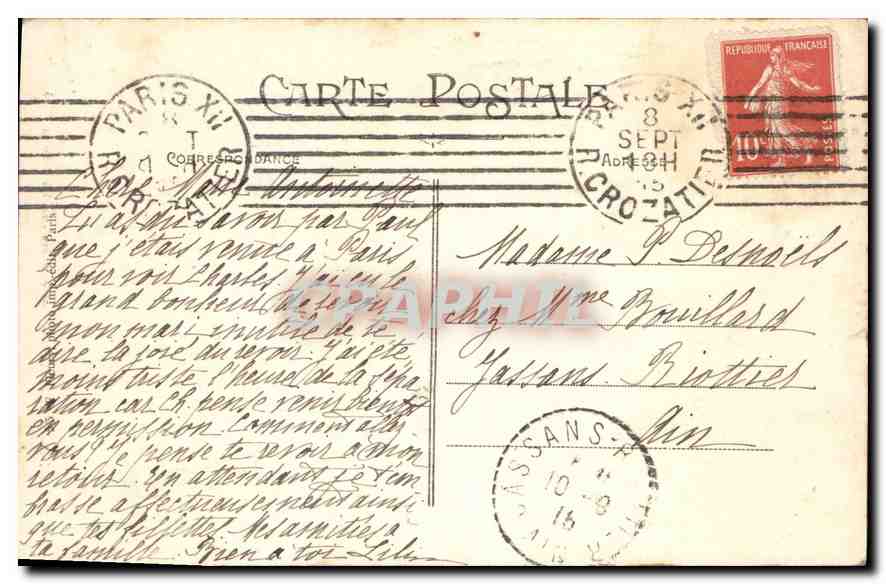 CARTE POSTALE
CORRESPONDANCE
ADRESSE
REPUBLIQUE FRANÇAISE
10c
POSTES
PARIS XII
8
SEPT
R. CROZATIER
PARIS XII
R. CROZATIER
Chère Marie Antoinette
Tu as du savoir par Paul
que j'étais venue à Paris
pour voir Charles. J'ai eu le
grand bonheur de revoir
mon mari inutile de te
dire la joie du revoir. J'ai été
moins triste l'heure de la sépa
ration car Ch. pense venir bientôt
en permission. Comment allez
vous? Je pense te revoir à mon
retour. En attendant je t'em
brasse affectueusement ainsi
que tes fillettes. Mes amitiés à
ta famille. Bien à toi Lili
Madame P. Desnoëls
chez Mme Bouillard
Jassans Riottier
Ain
JASSANS-R
10 -9
15
AIN
CPAPHIL
Paris